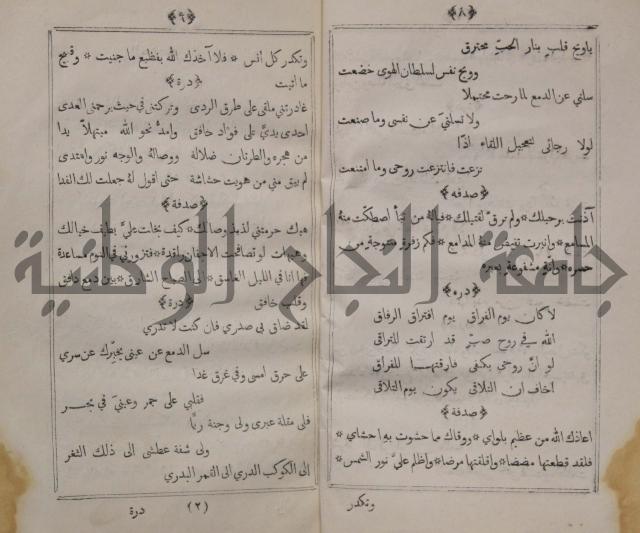 ﴿٨﴾
ياويح قلب بنار الحبّ محترق
وويح نفس لسلطان الهوى خضعت
سلني عن الدمع لما رحت محتملا
ولا تسلنيَ عن نفسي وما صنعت
لولا رجائي لتعجيل اللقاء اذًا
نزعت فانتزعت روحي وما امتنعت
﴿صدفه﴾
آذنت برحيلك * ولم ترق لقتيلك * فياله من نبأ اصطكت منهُ
المسامع * وانبرت تفيض منهُ المدامع * فكم زفرة متوجة من
حسره * وانَّة مشفوعة بعبره
﴿دره﴾
لا كان يوم الفراق يوم افتراق الرفاق
الله في روح صبّ قد ارتقت للتراقي
لو انَّ روحي بكفى فارقتها للفراق
اخاف ان التلاقي يكون يوم التلاقى
﴿صدفة﴾
اعاذك الله من عظيم بلواي * ووقاك ما حشوت به احشاي *
فلقد قطعتها مضضا * واقلقتها مرضا * واظلم عليَّ نور الشمس *
وتكدر
﴿٩﴾
وتكدر كل انس * فلا آخذك الله بفظيع ما جنيت * وقبيح
ما اتيت ﴿درة﴾
غادرتني ملقى على طرق الردى وتركتني في حيث يرحمني العدى
احدى يديَّ على فؤاد خافق وامدُّ نحو الله مبتهلاً يدا
من هجره والطرتان ضلالة ووصاله والوجه نور واهتدى
لم يبق مني من هويت حشاشة حتى اقول لهُ جعلت لك الفدا
﴿صدفة﴾
هبك حرمتني لذيذ وصالك * كيف بخلت عليَّ بطيف خيالك
وهيهات لو تصافحت الاجفان راقدة * فتزورني في النوم مساعدة
فها انا في الليل الغاسق * الى الصباح الشارق * بين دمع دافق
وقلب خافق ﴿درة﴾
لقد ضاق بي صدري فان كنت لا تدري
سل الدمع عن عيني يخبّرك عن سري
على حرق امسى وفي غرق غدا
فقلبي على جمر وعينيَ في بحر
فلى مقلة عبرى ولى وجنة ريًّا
ولى شفة عطشى الى ذلك الثغر
الى الكوكب الدري الى القمر البدري
(٢) درة
جامعة النجاح الوطنية